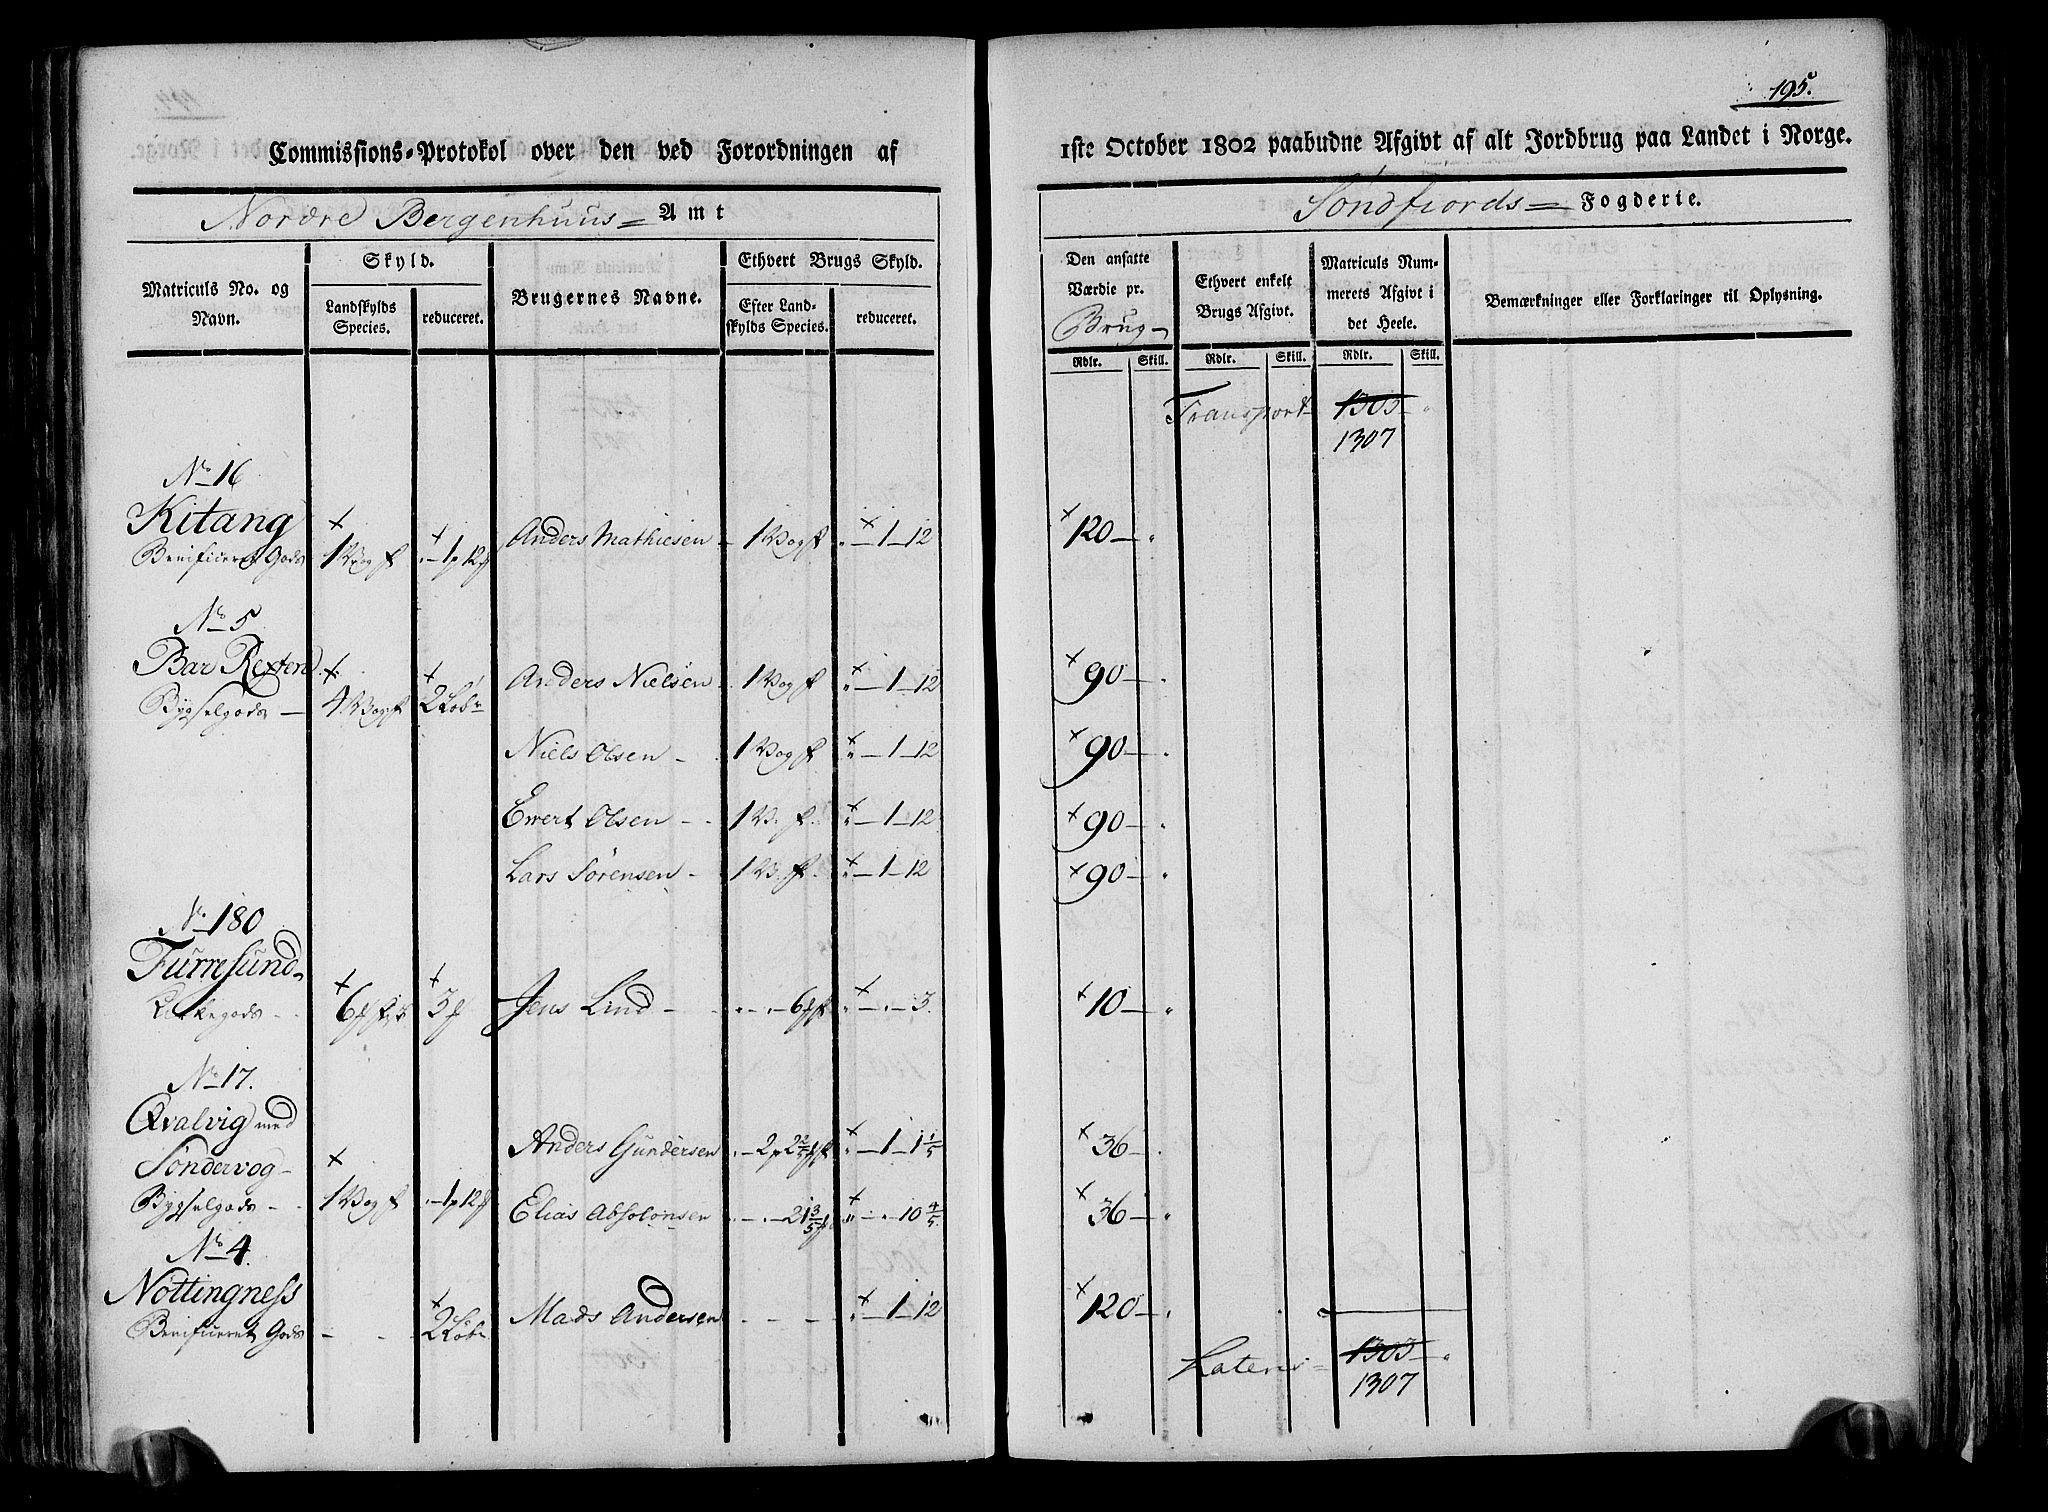 195.
Commissions-Protokol over den ved Forordningen af 1ste October 1802 paabudne Afgivt af alt Jordbrug paa Landet i Norge.
Nordre Bergenhuus Amt
Søndfiords Fogderie.
Matriculs No. og Navn.
Skyld.
Landskylds Species.
reduceret.
Brugernes Navne.
Ethvert Brugs Skyld.
Efter Landskylds Species.
reduceret.
Den ansatte Værdie pr. Brug
Ethvert enkelt Brugs Afgivt.
Matriculs Nummerets Afgivt i det Heele.
Bemærkninger eller Forklaringer til Oplysning.
Rdlr. Skill. Rdlr. Skill. Rdlr. Skill.
Transport 1303 "
1307
No 16
Kitang
Benificeret Gods 1 Vog f - 1 p 12 Anders Mathiesen - 1 Vog f " - 1 - 12 120 - "
No 5
Bar Rexten
Bygselgods - 4 Vog f 2 Løb Anders Nielsen 1 Vog f " - 1 - 12 90 - "
Niels Olsen - 1 Vog f " - 1 - 12 90 - "
Ewert Olsen - 1 V. f " - 1 - 12 90 - "
Lars Sørensen - 1 V. f " - 1 - 12 90 - "
No 180
Furresund
Kirkegods 6 3 Jens Lind - 6 " - " - 3. 10 - "
No 17.
Qvalvig med
Søndervog Anders Gundersen - 2 p 2 2/5 " - 1 - 1 1/5 36 -
Bygselgods - 1 Vog f - 1 p 12 Elias Absolonsen - 21 3/5 " - 10 4/5 36 - "
No 4.
Nøttingness
Benificeret Gods - - 2 Løb Mads Andersen - - - " - 1 - 12 120 - "
Lateris 1303 - "
1307